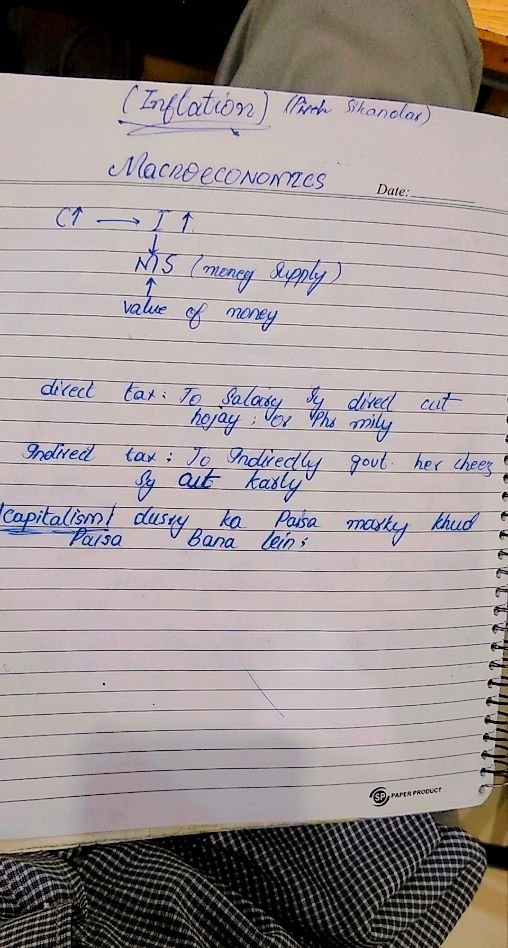 (Inflation) (Sikandar)
Macroeconomics
Date:
C↑ → I ↑
↓
MS (money supply)
↑
value of money
direct tax: Jo Salary sy direct cut
hojay; or phr mily
Indirect tax: Jo Indirectly govt. her cheez
sy cut karly
|Capitalism| dusry ka Paisa marky khud
Paisa bana lein;
SP PAPER PRODUCT